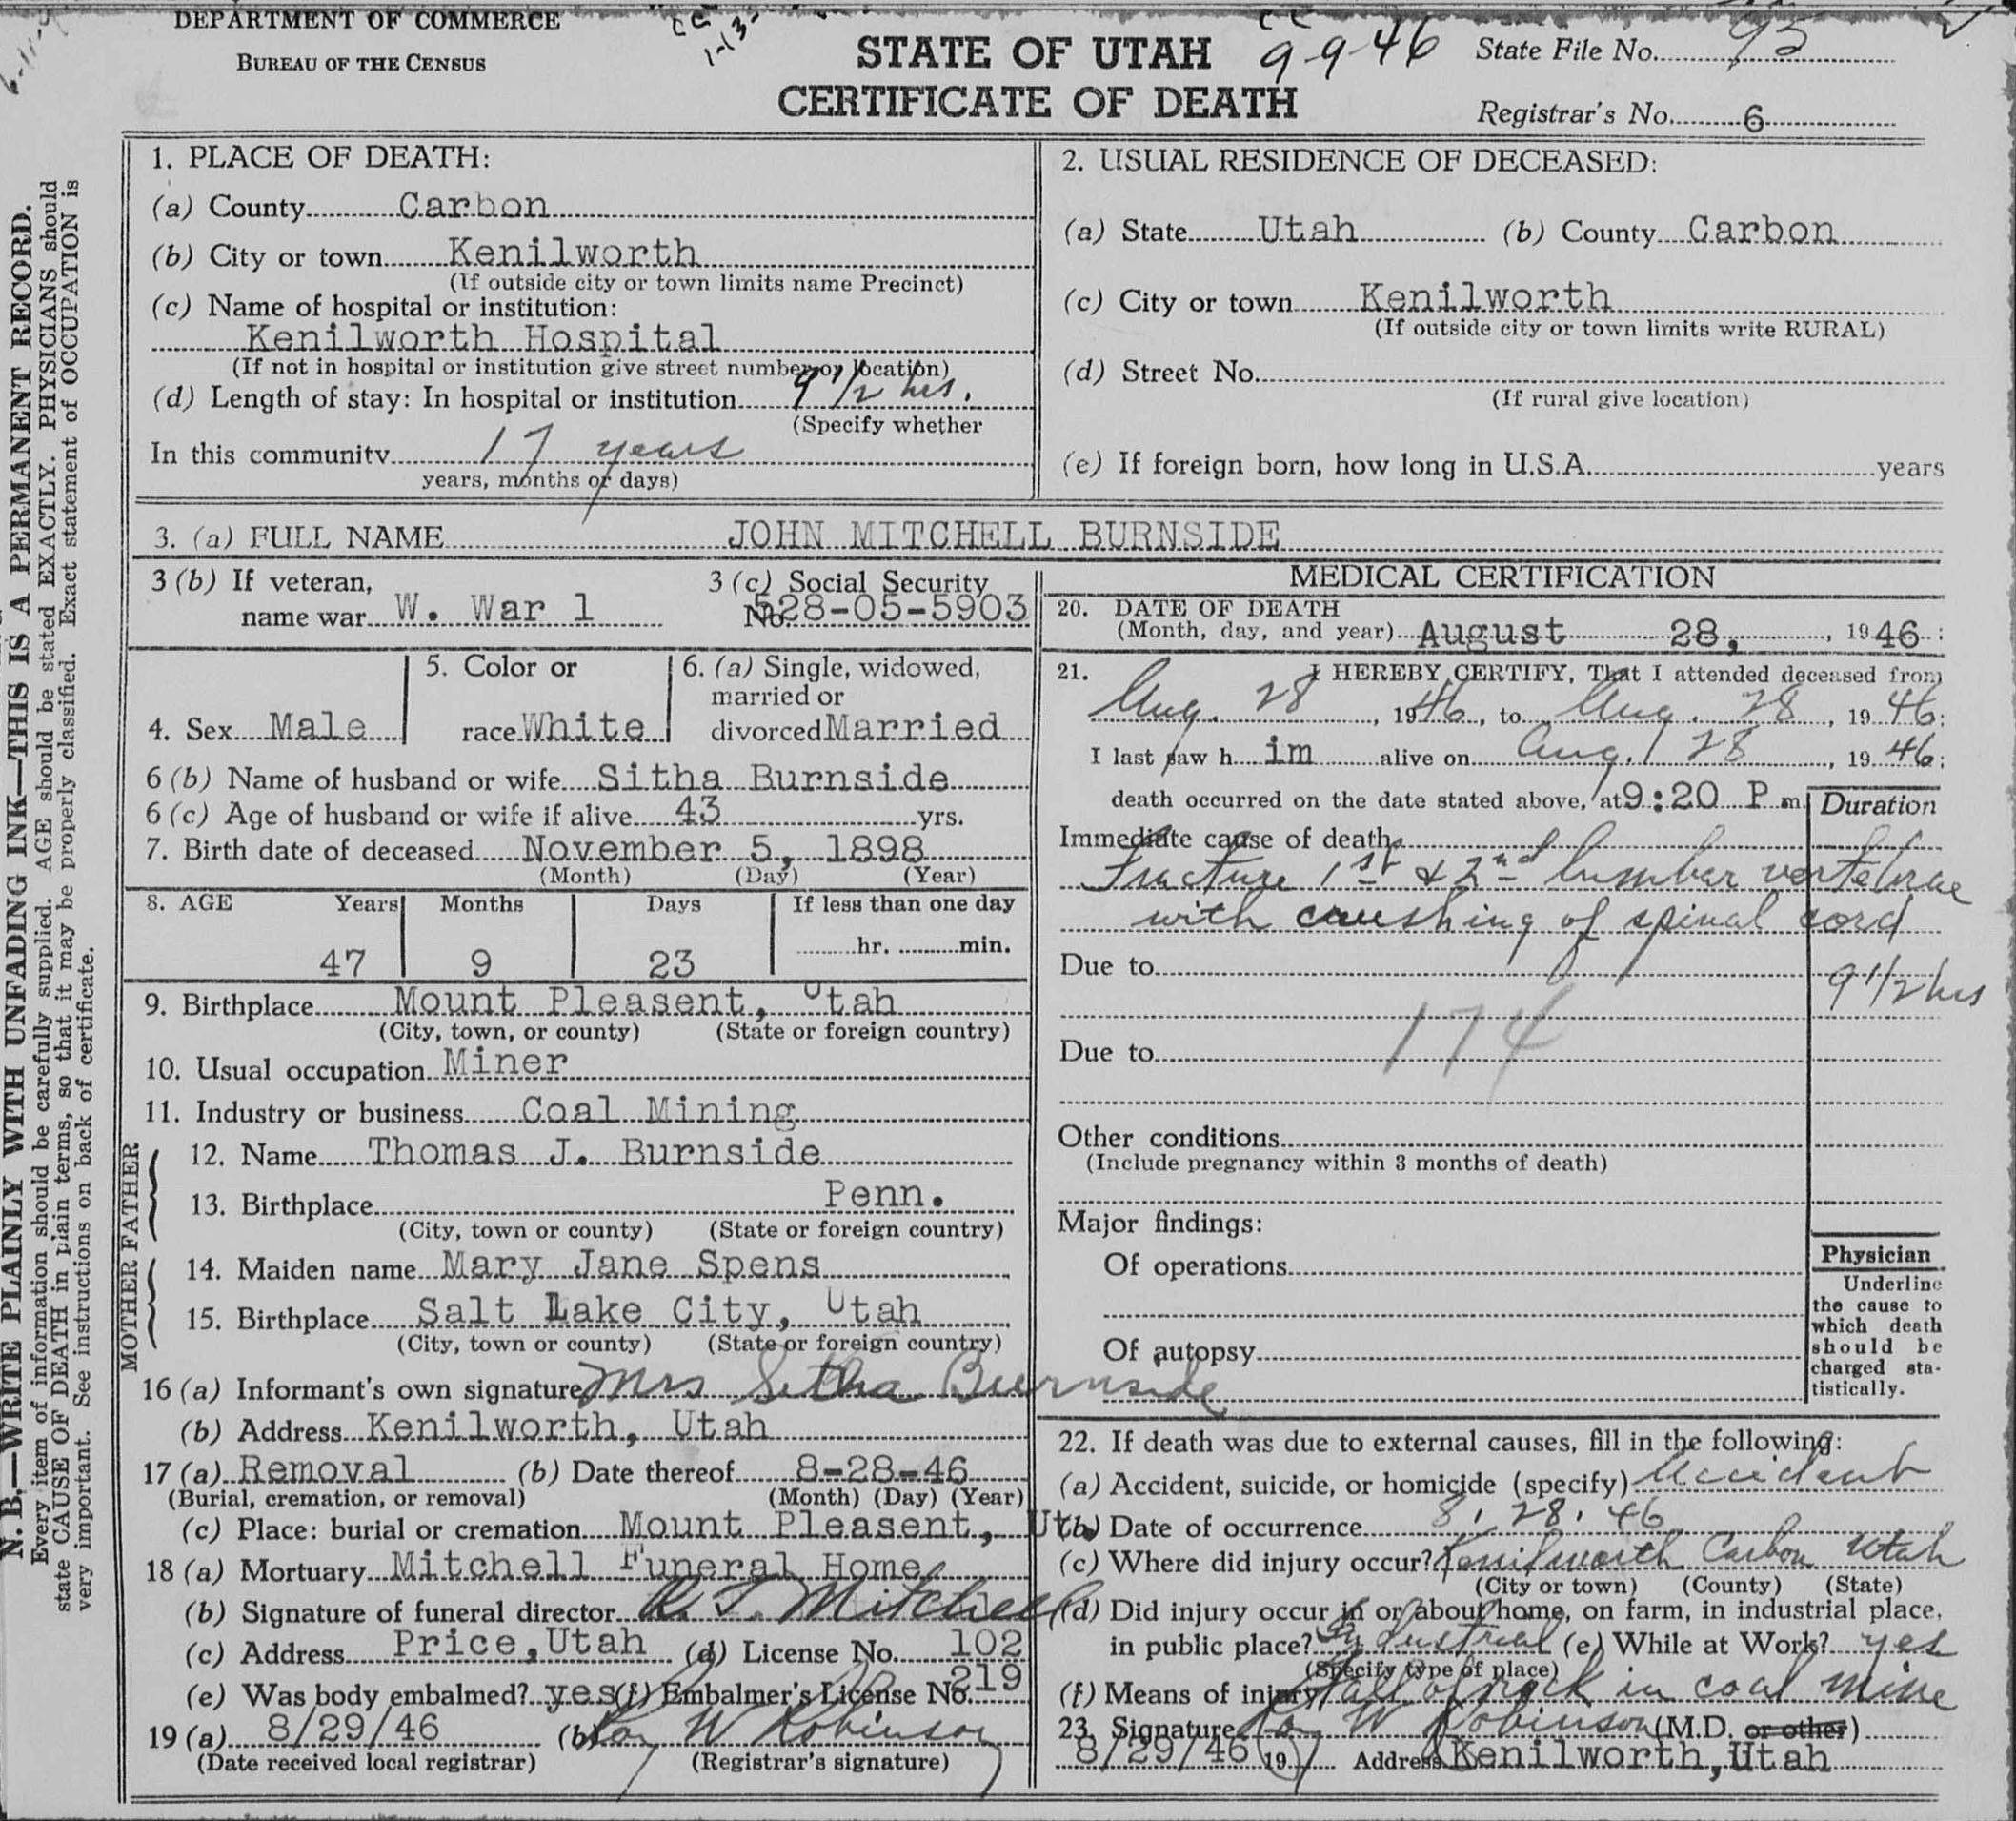 DEPARTMENT OF COMMERCE
BUREAU OF THE CENSUS
STATE OF UTAH
CERTIFICATE OF DEATH
9-9-46
State File No. 95
Registrar's No. 6
N. B.—WRITE PLAINLY WITH UNFADING INK—THIS IS A PERMANENT RECORD.
Every item of information should be carefully supplied. AGE should be stated EXACTLY. PHYSICIANS should
state CAUSE OF DEATH in plain terms, so that it may be properly classified. Exact statement of OCCUPATION is
very important. See instructions on back of certificate.
1. PLACE OF DEATH:
(a) County Carbon
(b) City or town Kenilworth
(If outside city or town limits name Precinct)
(c) Name of hospital or institution:
Kenilworth Hospital
(If not in hospital or institution give street number or location)
(d) Length of stay: In hospital or institution 9 1/2 hrs.
(Specify whether
In this community 17 years
years, months or days)
2. USUAL RESIDENCE OF DECEASED:
(a) State Utah (b) County Carbon
(c) City or town Kenilworth
(If outside city or town limits write RURAL)
(d) Street No.
(If rural give location)
(e) If foreign born, how long in U.S.A. years
3. (a) FULL NAME JOHN MITCHELL BURNSIDE
3 (b) If veteran,
name war W. War 1
3 (c) Social Security
No. 528-05-5903
4. Sex Male
5. Color or
race White
6. (a) Single, widowed,
married or
divorced Married
6 (b) Name of husband or wife Sitha Burnside
6 (c) Age of husband or wife if alive 43 yrs.
7. Birth date of deceased November 5, 1898
(Month) (Day) (Year)
8. AGE Years Months Days If less than one day
47 9 23 hr. min.
9. Birthplace Mount Pleasent, Utah
(City, town, or county) (State or foreign country)
10. Usual occupation Miner
11. Industry or business Coal Mining
FATHER
12. Name Thomas J. Burnside
13. Birthplace Penn.
(City, town or county) (State or foreign country)
MOTHER
14. Maiden name Mary Jane Spens
15. Birthplace Salt Lake City, Utah
(City, town or county) (State or foreign country)
16 (a) Informant's own signature Mrs Sitha Burnside
(b) Address Kenilworth, Utah
17 (a) Removal (b) Date thereof 8-28-46
(Burial, cremation, or removal) (Month) (Day) (Year)
(c) Place: burial or cremation Mount Pleasent, Ut.
18 (a) Mortuary Mitchell Funeral Home
(b) Signature of funeral director R. T. Mitchell
(c) Address Price, Utah (d) License No. 102
(e) Was body embalmed? yes (f) Embalmer's License No. 219
19 (a) 8/29/46 (b) Roy W Robinson
(Date received local registrar) (Registrar's signature)
MEDICAL CERTIFICATION
20. DATE OF DEATH
(Month, day, and year) August 28, 1946
21. I HEREBY CERTIFY, That I attended deceased from
Aug. 28, 1946, to Aug. 28, 1946;
I last saw him alive on Aug. 28, 1946;
death occurred on the date stated above, at 9:20 P m.
Duration
Immediate cause of death
Fracture 1st & 2nd lumbar vertebrae
with crushing of spinal cord
Due to 9 1/2 hrs
174
Due to
Other conditions
(Include pregnancy within 3 months of death)
Major findings:
Of operations
Of autopsy
Physician
Underline
the cause to
which death
should be
charged sta-
tistically.
22. If death was due to external causes, fill in the following:
(a) Accident, suicide, or homicide (specify) Accident
(b) Date of occurrence 8, 28, 46
(c) Where did injury occur? Kenilworth Carbon Utah
(City or town) (County) (State)
(d) Did injury occur in or about home, on farm, in industrial place,
in public place? Industrial (e) While at Work? yes
(Specify type of place)
(f) Means of injury Fall of rock in coal mine
23. Signature Roy W Robinson (M.D. or other)
8/29/46 19 Address Kenilworth, Utah